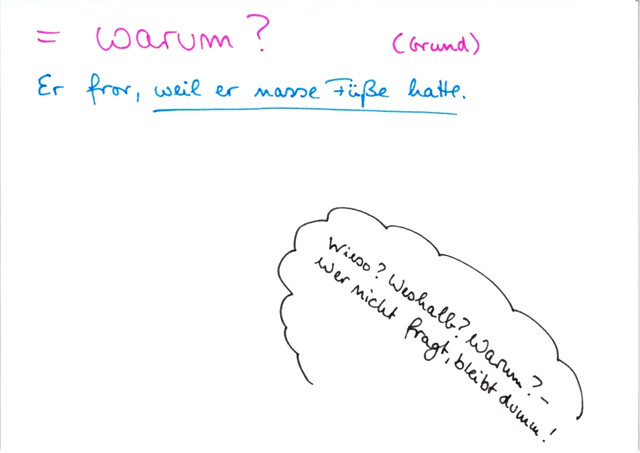 = warum? (Grund)
Er fror, weil er nasse Füße hatte.
Wieso? Weshalb? Warum? –
wer nicht fragt, bleibt dumm!